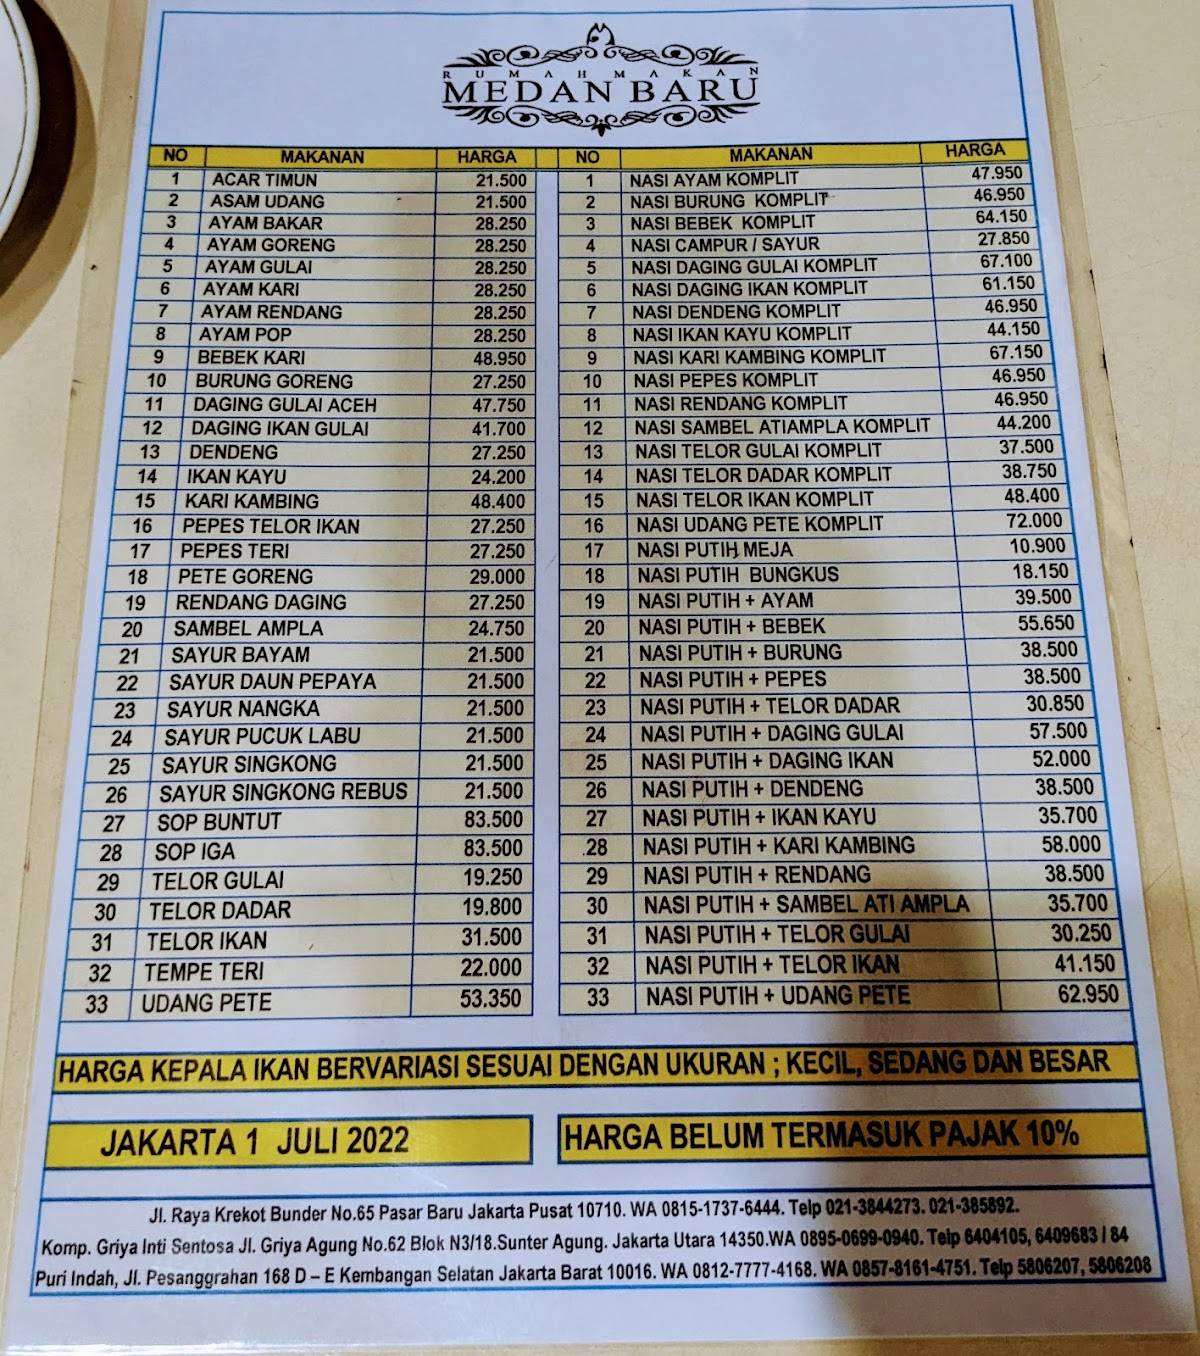 RUMAH MAKAN
MEDAN BARU
NO MAKANAN HARGA NO MAKANAN HARGA
1 ACAR TIMUN 21.500 1 NASI AYAM KOMPLIT 47.950
2 ASAM UDANG 21.500 2 NASI BURUNG KOMPLIT 46.950
3 AYAM BAKAR 28.250 3 NASI BEBEK KOMPLIT 64.150
4 AYAM GORENG 28.250 4 NASI CAMPUR / SAYUR 27.850
5 AYAM GULAI 28.250 5 NASI DAGING GULAI KOMPLIT 67.100
6 AYAM KARI 28.250 6 NASI DAGING IKAN KOMPLIT 61.150
7 AYAM RENDANG 28.250 7 NASI DENDENG KOMPLIT 46.950
8 AYAM POP 28.250 8 NASI IKAN KAYU KOMPLIT 44.150
9 BEBEK KARI 48.950 9 NASI KARI KAMBING KOMPLIT 67.150
10 BURUNG GORENG 27.250 10 NASI PEPES KOMPLIT 46.950
11 DAGING GULAI ACEH 47.750 11 NASI RENDANG KOMPLIT 46.950
12 DAGING IKAN GULAI 41.700 12 NASI SAMBEL ATIAMPLA KOMPLIT 44.200
13 DENDENG 27.250 13 NASI TELOR GULAI KOMPLIT 37.500
14 IKAN KAYU 24.200 14 NASI TELOR DADAR KOMPLIT 38.750
15 KARI KAMBING 48.400 15 NASI TELOR IKAN KOMPLIT 48.400
16 PEPES TELOR IKAN 27.250 16 NASI UDANG PETE KOMPLIT 72.000
17 PEPES TERI 27.250 17 NASI PUTIH MEJA 10.900
18 PETE GORENG 29.000 18 NASI PUTIH BUNGKUS 18.150
19 RENDANG DAGING 27.250 19 NASI PUTIH + AYAM 39.500
20 SAMBEL AMPLA 24.750 20 NASI PUTIH + BEBEK 55.650
21 SAYUR BAYAM 21.500 21 NASI PUTIH + BURUNG 38.500
22 SAYUR DAUN PEPAYA 21.500 22 NASI PUTIH + PEPES 38.500
23 SAYUR NANGKA 21.500 23 NASI PUTIH + TELOR DADAR 30.850
24 SAYUR PUCUK LABU 21.500 24 NASI PUTIH + DAGING GULAI 57.500
25 SAYUR SINGKONG 21.500 25 NASI PUTIH + DAGING IKAN 52.000
26 SAYUR SINGKONG REBUS 21.500 26 NASI PUTIH + DENDENG 38.500
27 SOP BUNTUT 83.500 27 NASI PUTIH + IKAN KAYU 35.700
28 SOP IGA 83.500 28 NASI PUTIH + KARI KAMBING 58.000
29 TELOR GULAI 19.250 29 NASI PUTIH + RENDANG 38.500
30 TELOR DADAR 19.800 30 NASI PUTIH + SAMBEL ATI AMPLA 35.700
31 TELOR IKAN 31.500 31 NASI PUTIH + TELOR GULAI 30.250
32 TEMPE TERI 22.000 32 NASI PUTIH + TELOR IKAN 41.150
33 UDANG PETE 53.350 33 NASI PUTIH + UDANG PETE 62.950
HARGA KEPALA IKAN BERVARIASI SESUAI DENGAN UKURAN ; KECIL, SEDANG DAN BESAR
JAKARTA 1 JULI 2022 HARGA BELUM TERMASUK PAJAK 10%
Jl. Raya Krekot Bunder No.65 Pasar Baru Jakarta Pusat 10710. WA 0815-1737-6444. Telp 021-3844273. 021-385892.
Komp. Griya Inti Sentosa Jl. Griya Agung No.62 Blok N3/18.Sunter Agung. Jakarta Utara 14350.WA 0895-0699-0940. Telp 6404105, 6409683 / 84
Puri Indah, Jl. Pesanggrahan 168 D – E Kembangan Selatan Jakarta Barat 10016. WA 0812-7777-4168. WA 0857-8161-4751. Telp 5806207, 5806208